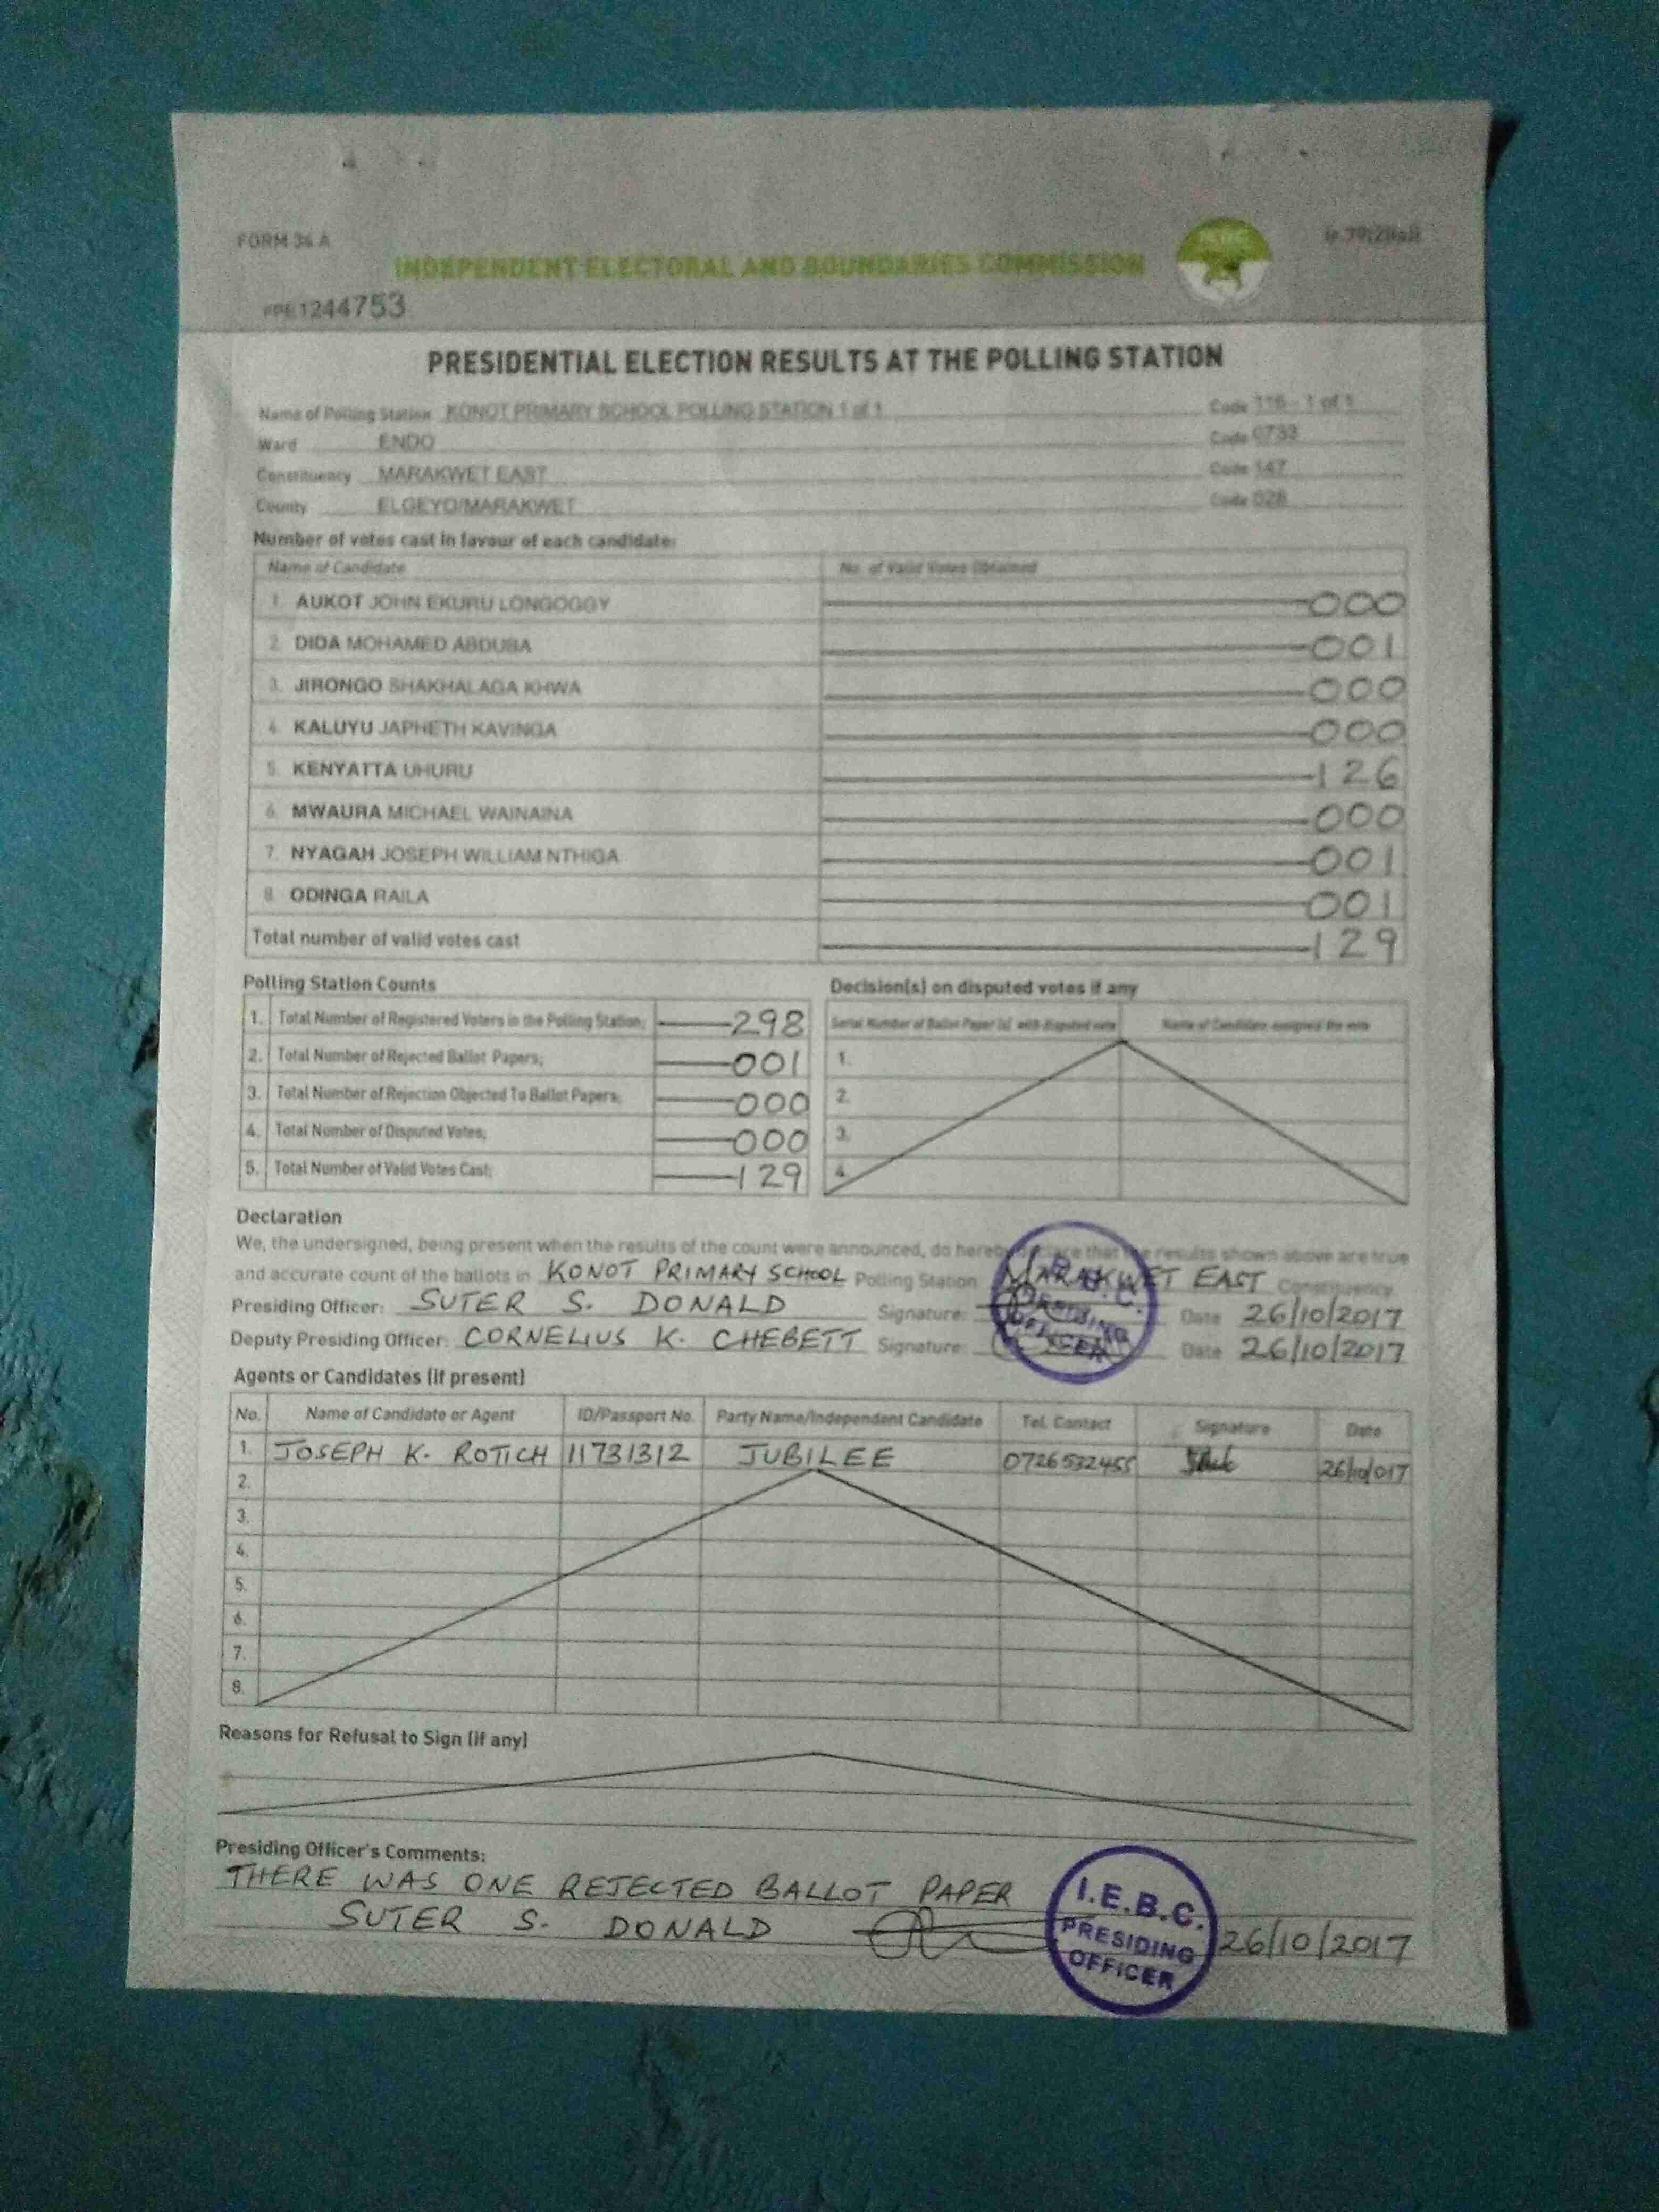 FORM 34 A
INDEPENDENT ELECTORAL AND BOUNDARIES COMMISSION
1244753
PRESIDENTIAL ELECTION RESULTS AT THE POLLING STATION
Name of Polling Station KONOT PRIMARY SCHOOL POLLING STATION 1 of 1 Code 116 - 1 of 1
Ward ENDO Code 0733
Constituency MARAKWET EAST Code 147
County ELGEYO/MARAKWET Code 028
Number of votes cast in favour of each candidate:
Name of Candidate No. of Valid Votes Obtained
1. AUKOT JOHN EKURU LONGOGGY 000
2. DIDA MOHAMED ABDUBA 001
3. JIRONGO SHAKHALAGA KHWA 000
4. KALUYU JAPHETH KAVINGA 000
5. KENYATTA UHURU 126
6. MWAURA MICHAEL WAINAINA 000
7. NYAGAH JOSEPH WILLIAM NTHIGA 001
8. ODINGA RAILA 001
Total number of valid votes cast 129
Polling Station Counts
1. Total Number of Registered Voters in the Polling Station; 298
2. Total Number of Rejected Ballot Papers; 001
3. Total Number of Rejection Objected To Ballot Papers; 000
4. Total Number of Disputed Votes; 000
5. Total Number of Valid Votes Cast; 129
Decision(s) on disputed votes if any
Serial Number of Ballot Paper (s) with disputed vote Name of Candidate assigned the vote
1.
2.
3.
4.
Declaration
We, the undersigned, being present when the results of the count were announced, do hereby declare that the results shown above are true
and accurate count of the ballots in KONOT PRIMARY SCHOOL Polling Station MARAKWET EAST Constituency
Presiding Officer: SUTER S. DONALD Signature: Date 26/10/2017
Deputy Presiding Officer: CORNELIUS K. CHEBETT Signature: Date 26/10/2017
PRESIDING
OFFICER
Agents or Candidates (if present)
No. Name of Candidate or Agent ID/Passport No. Party Name/Independent Candidate Tel. Contact Signature Date
1. JOSEPH K. ROTICH 11731312 JUBILEE 0726532455 26/10/017
2.
3.
4.
5.
6.
7.
8.
Reasons for Refusal to Sign (if any)
Presiding Officer's Comments:
THERE WAS ONE REJECTED BALLOT PAPER
SUTER S. DONALD 26/10/2017
I.E.B.C.
PRESIDING
OFFICER